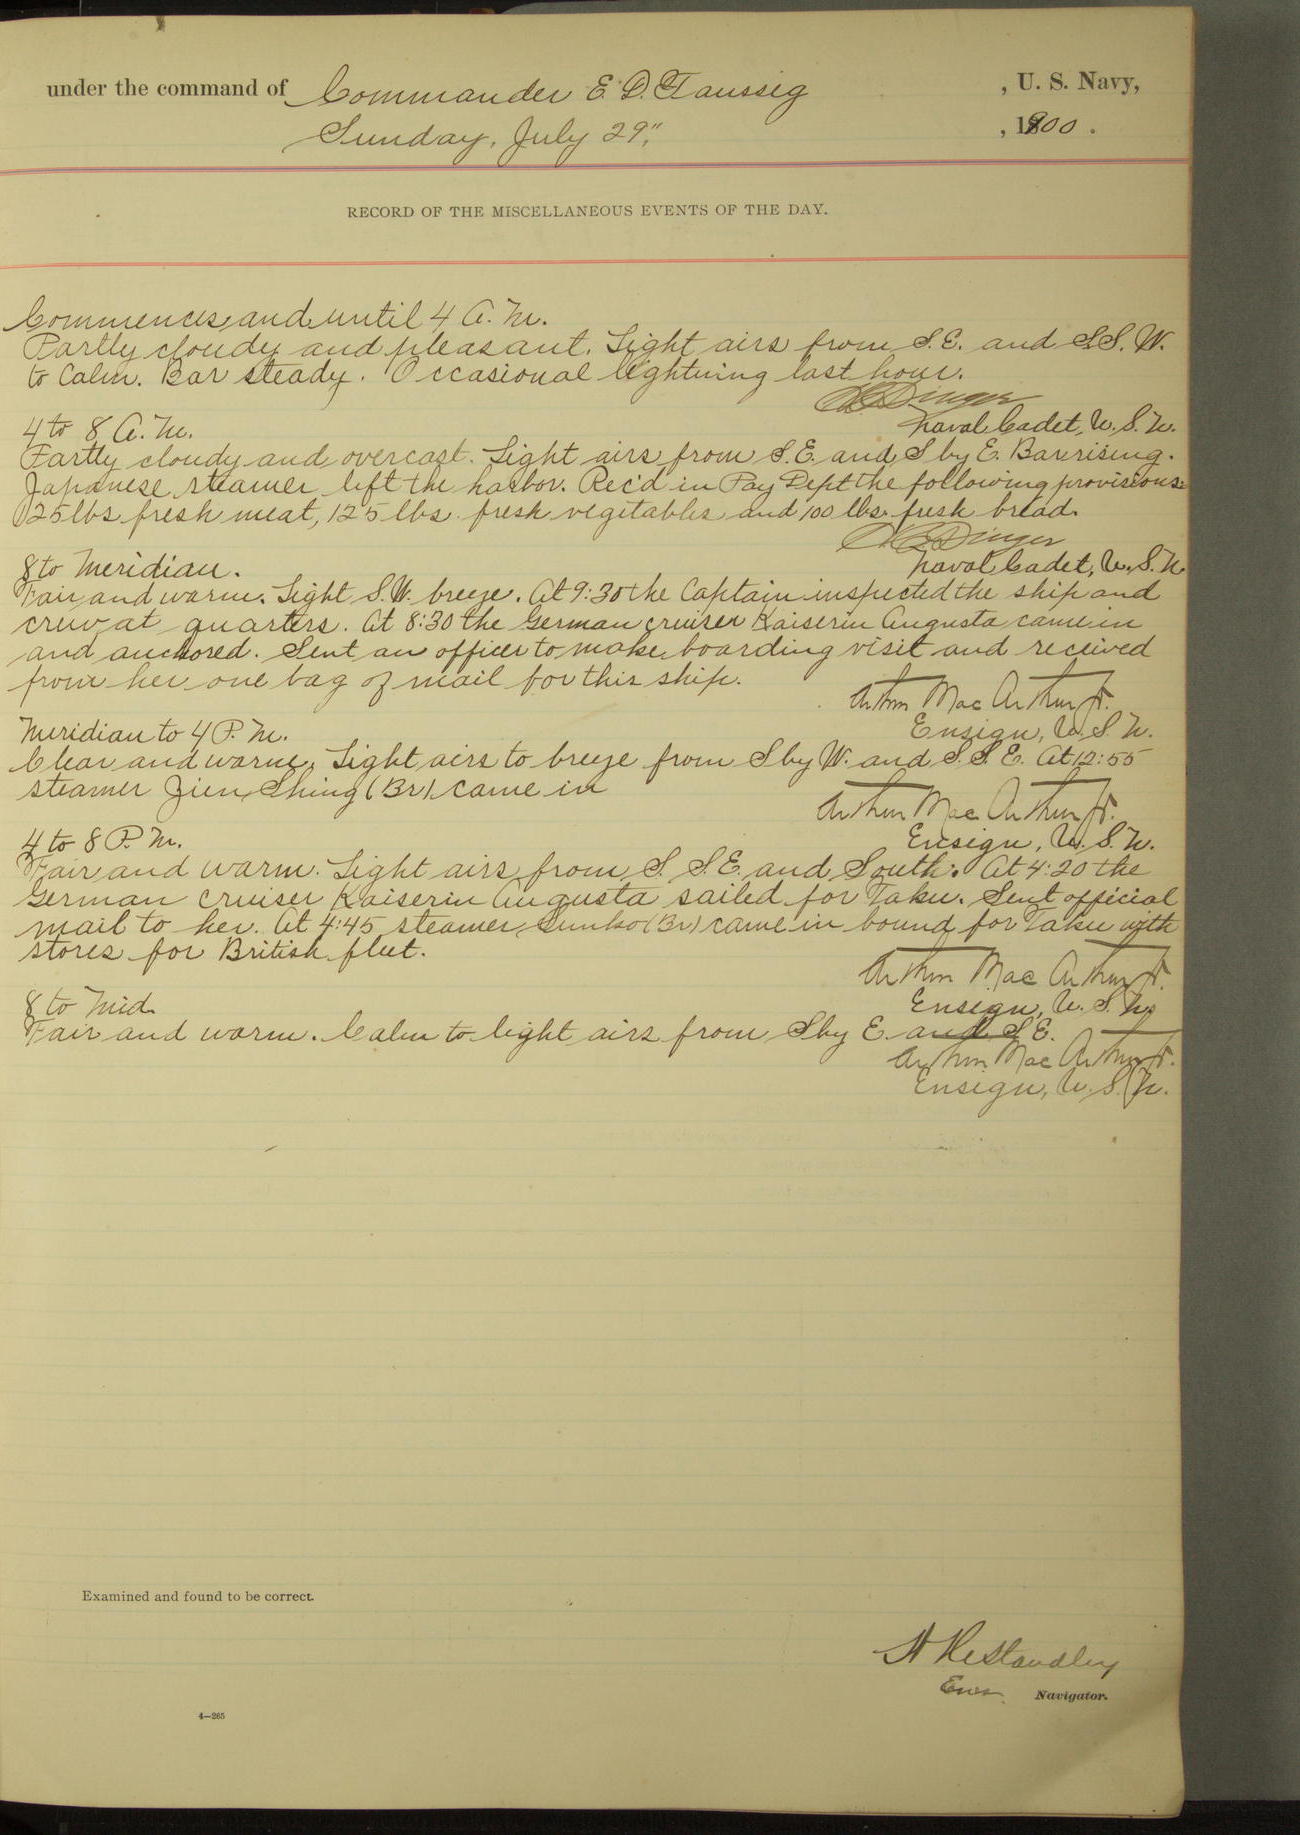 under the command of Commander E. D. Taussig, U. S. Navy,
Sunday, July 29", 1900.
RECORD OF THE MISCELLANEOUS EVENTS OF THE DAY.
Commences and until 4 A.M.
Partly cloudy and pleasant. Light airs from S.E. and S.S.W.
to Calm. Bar steady. Occasional lightning last hour.
Dinger
Naval Cadet, U.S.N.
4 to 8 A.M.
Partly cloudy and overcast. Light airs from S.E. and S by E. Bar rising.
Japanese steamer left the harbor. Rec'd in Pay Dept the following provisions:
125 lbs fresh meat, 125 lbs fresh vegetables and 100 lbs fresh bread.
Dinger
Naval Cadet, U.S.N.
8 to Meridian.
Fair and warm. Light S.W. breeze. At 9:30 the Captain inspected the ship and
crew at quarters. At 8:30 the German cruiser Kaiserin Augusta came in
and anchored. Sent an officer to make boarding visit and received
from her one bag of mail for this ship.
Arthur MacArthur Jr.
Ensign, U.S.N.
Meridian to 4 P.M.
Clear and warm. Light airs to breeze from S by W. and S.S.E. At 12:55
steamer Jien Shing (Br) came in
Arthur MacArthur Jr.
Ensign, U.S.N.
4 to 8 P.M.
Fair and warm. Light airs from S.S.E. and South. At 4:20 the
German cruiser Kaiserin Augusta sailed for Taku. Sent official
mail to her. At 4:45 steamer (Br) came in bound for Taku with
stores for British fleet.
Arthur MacArthur Jr.
Ensign, U.S.N.
8 to Mid.
Fair and warm. Calm to light airs from S by E. and S.E.
Arthur MacArthur Jr.
Ensign, U.S.N.
Examined and found to be correct.
Standley
Ens. Navigator.
4—265